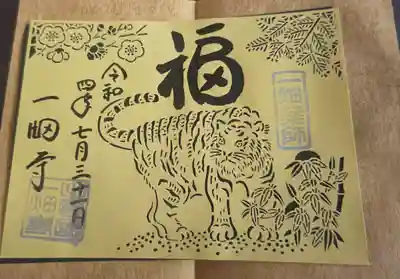 福
一畑薬師
令和
四年七月三十一日
一畑寺